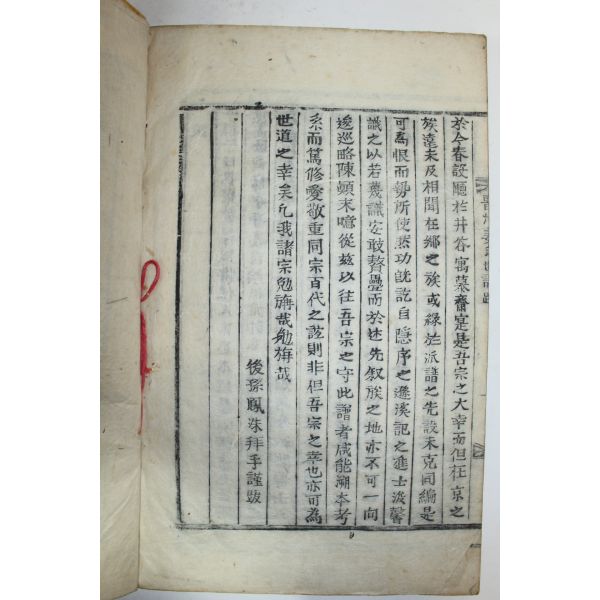 於今春設廳於井谷寓墓齋寔是吾宗之大幸而但在京之
族遠未及相聞在鄉之族或緣於派譜之先設未克同編是
可為恨而勢所使然功旣訖自隱序之遯溪記之進士浚馨
識之以若蔑識安敢贅疊而於述先叙族之地亦不可一向
逡巡略陳顚末噫從玆以往吾宗之守此譜者咸能溯本考
系而篤修愛敬重同宗百代之誼則非但吾宗之幸也亦可為
世道之幸矣凡我諸宗勉旃哉勉旃哉
後孫鳳洙拜手謹跋
姜氏世譜跋